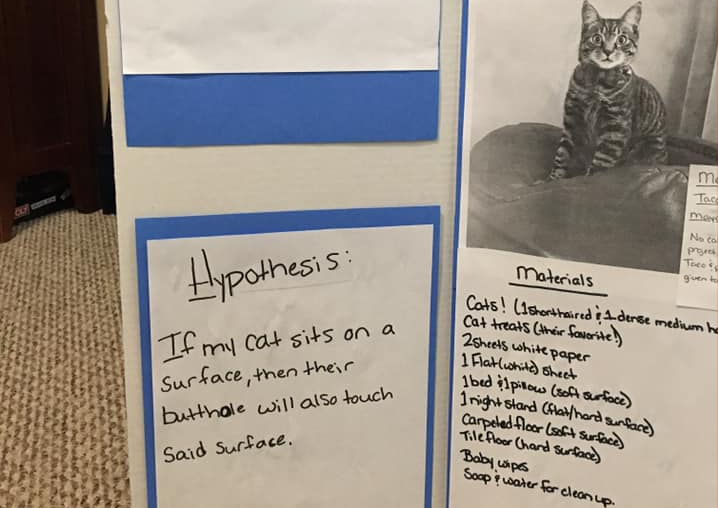 Hypothesis:
If my cat sits on a
surface, then their
butthole will also touch
said surface.
Materials
Cats! (1 shorthaired & 1 dense medium
Cat treats (their favorite!)
2 sheets white paper
1 Flat (white) sheet
1 bed & 1 pillow (soft surface)
1 night stand (flat/hard surface)
Carpeted floor (soft surface)
Tile floor (hard surface)
Baby wipes
Soap & water for clean up.
No
project
Taco &
given to